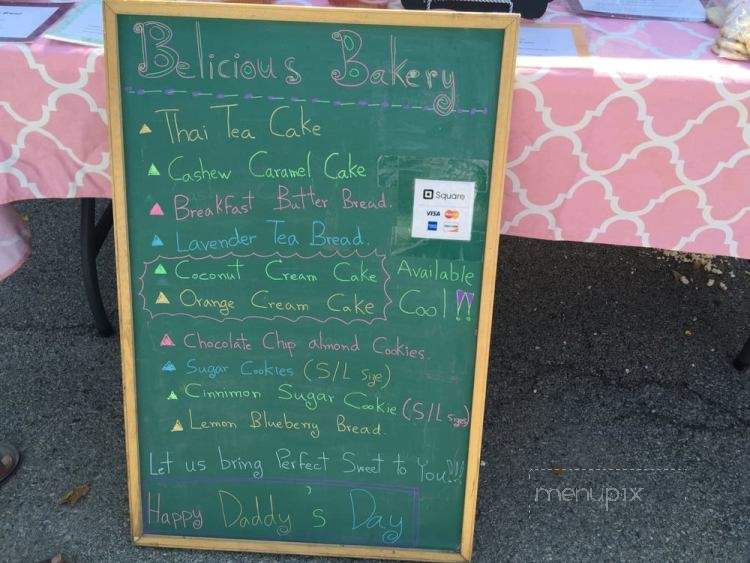 Belicious Bakery
Thai Tea Cake
Cashew Caramel Cake
Breakfast Butter Bread.
Lavender Tea Bread.
Coconut Cream Cake
Orange Cream Cake
Available
Cool!!
Chocolate Chip almond Cookies.
Sugar Cookies (S/L Size)
Cinnimon Sugar Cookie (S/L Size)
Lemon Blueberry Bread.
Let us bring Perfect Sweet to You!!!
Happy Daddy's Day
Square
VISA
menupix